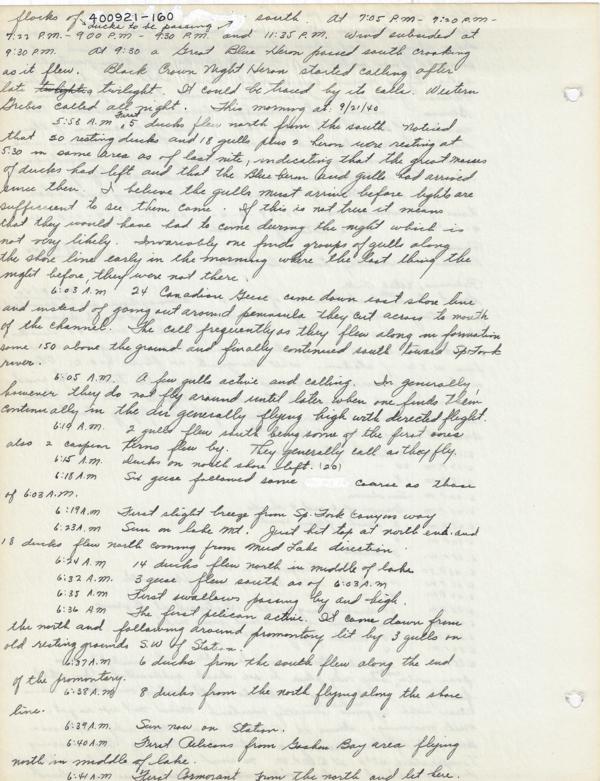 400921-160
flocks of ducks to be passing south. At 7:05 P.M - 7:20 P.M -
7:27 P.M. - 9:00 P.M - 9:30 P.M. and 11:35 P.M. Wind subsided at
9:30 P.M. At 9:30 a Great Blue Heron passed south croaking
as it flew. Black Crown Night Heron started calling after
late twilight. It could be traced by its calls. Western
Grebes called all night. This morning at: 9/21/40
5:58 A.M First, 5 ducks flew north from the south. Noticed
that 50 resting ducks and 18 gulls plus 2 heron were resting at
5:30 in same area as of last nite, indicating that the great masses
of ducks had left and that the Blue heron and gulls had arrived
since then. I believe the gulls must arrive before lights are
sufficient to see them come. If this is not true it means
that they would have had to come during the night which is
not very likely. Invariably one finds groups of gulls along
the shore line early in the morning where the last thing the
night before, they were not there.
6:03 A.M 24 Canadian Geese came down east shore line
and instead of going out around peninsula they cut across to mouth
of the channel. The call frequently as they flew along in formation
some 150 above the ground and finally continued south toward Sp. Fork
river.
6:05 A.M. A few gulls active and calling. In generally,
however they do not fly around until later when one finds them
continually in the air generally flying high with directed flight.
6:19 A.M. 2 gulls flew south being some of the first ones
also 2 caspian terns flew by. They generally call as they fly.
6:15 A.M. ducks on north shore left. (26)
6:18 A.M Six geese followed same coarse as those
of 6:03 A.M.
6:19 A.M First slight breeze from Sp. Fork Canyon way
6:23 A.M Sun on lake Mt. Just hit top at north end. and
18 ducks flew north coming from Mud Lake direction.
6:24 A.M 14 ducks flew north in middle of lake
6:32 A.M. 3 geese flew south as of 6:03 A.M
6:35 A.M First swallows passing by and high.
6:36 A.M The first pelican active. It came down from
the north and following around promontory lit by 3 gulls on
old resting grounds S.W of Station.
6:37 A.M 6 ducks from the south flew along the end
of the promontory.
6:38 A.M. 8 ducks from the north flying along the shore
line.
6:39 A.M. Sun now on Station.
6:40 A.M First Pelicans from Goshen Bay area flying
north in middle of lake.
6:41 A.M First Cormorant from the north and let here.